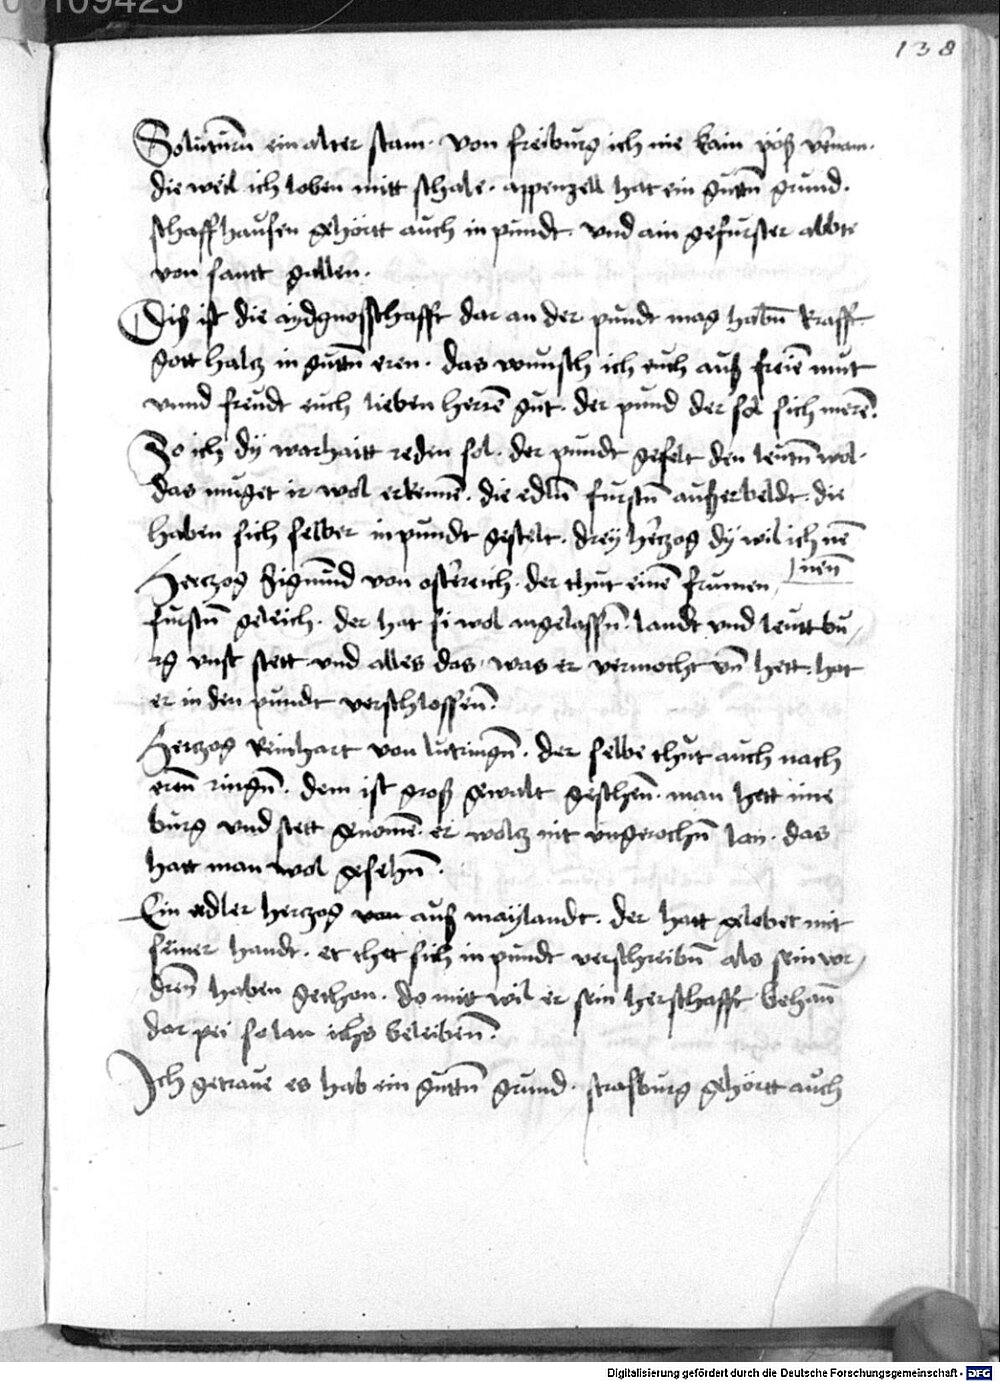 00109425
138
Soluturn̄ ein alter stam · von freiburg ich nie kain pöß v̄nam ·
die weil ich loben mitt schale · appenzell hat ein guttn̄ grund ·
schaffhausen gehörtt auch in pundt · vnd ain gefurster abbte
von sanct gallen ·
Diß ist die aÿdgnosschafft dar an der pundt mag habn̄ krafft
gott haltz in guttn̄ eren · das wunsch ich euch auß freiē mut
vnnd freudt euch lieben herrē gut · der pund der sol sich merē ·
So ich dÿ warhaitt reden sol · der pundt gefelt den leutn̄ wol ·
das muget ir wol erkennē · die edln̄ furstn̄ außerbeldt · die
haben sich selber in pundt gestelt · dreÿ h̄czog dÿ wil ich nē
nen̄
Herczog Sigmūd von ost̄reich · der thut einē frumen
furstn̄ geleich · der hat si wol angelassn̄ · landt vnd leutt bu
rg vnst stett vnd alles das · was er vermocht vn̄ hett · hat
er in den pundt verschlossen̄ ·
Herczog Reinhart von lutringn̄ · der selbe thut auch nach
eren̄ ringn̄ · dem ist groß gewalt geschen̄ · man hett ime
burg vnd stett genomē · er woltz nit vngerochn̄ lan · das
hatt man wol gesehn̄ ·
Ein edler herczog von auß maÿlandt · der hatt gelobet mit
seiner handt · er thet sich in pundt verschreibn̄ als sein vor
dren̄ haben gethon · do mit wil er sein herschafft behan̄
dar pei so lan ichs beleiben̄ ·
Ich getraue es hab ein guttn̄ grund · strasburg gehörtt auch
Digitalisierung gefördert durch die Deutsche Forschungsgemeinschaft - DFG